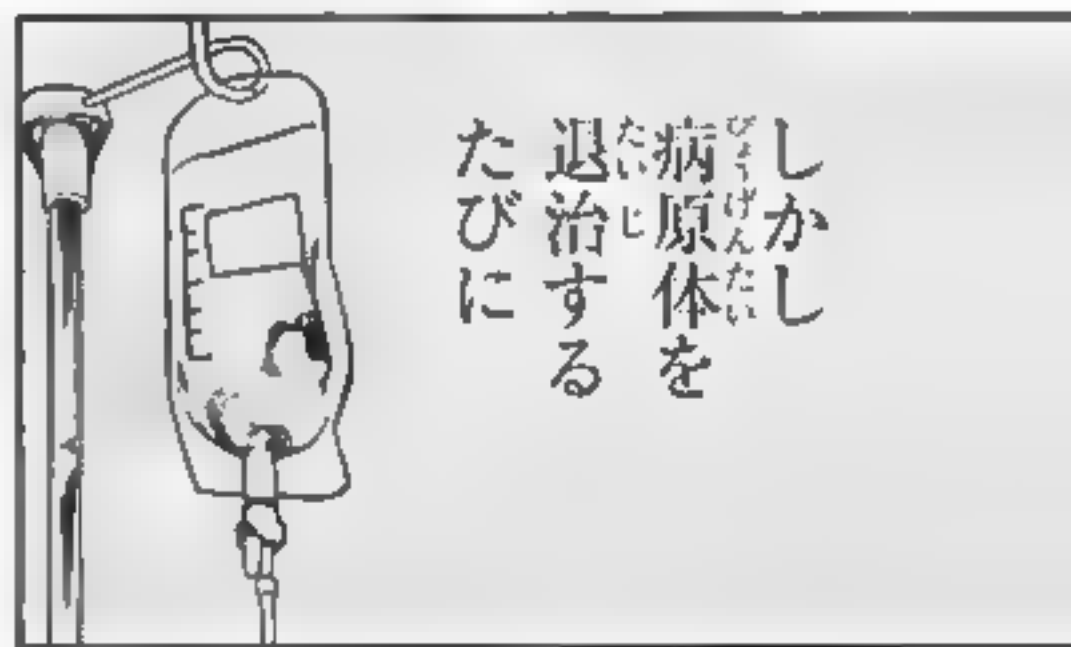 しかし
病原体を
退治する
たびに